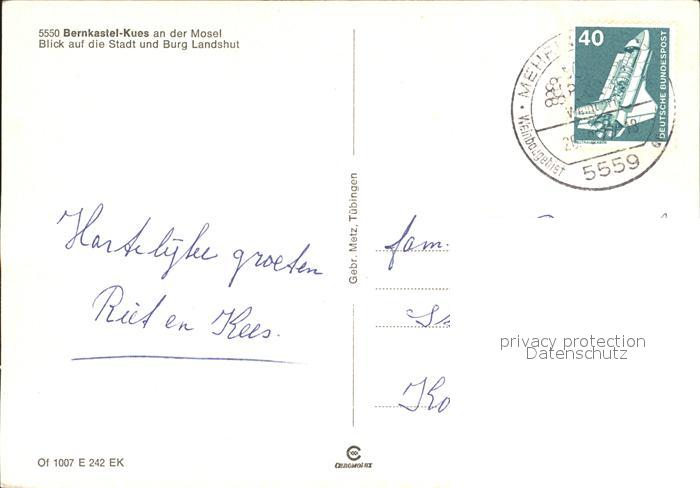 5550 Bernkastel-Kues an der Mosel
Blick auf die Stadt und Burg Landshut
40
DEUTSCHE BUNDESPOST
MEHR
Weinbaugebiet
5559
Gebr. Metz, Tübingen
Hartelijke groeten
Riet en Kees.
fam.
Ko
privacy protection
Datenschutz
Of 1007 E 242 EK